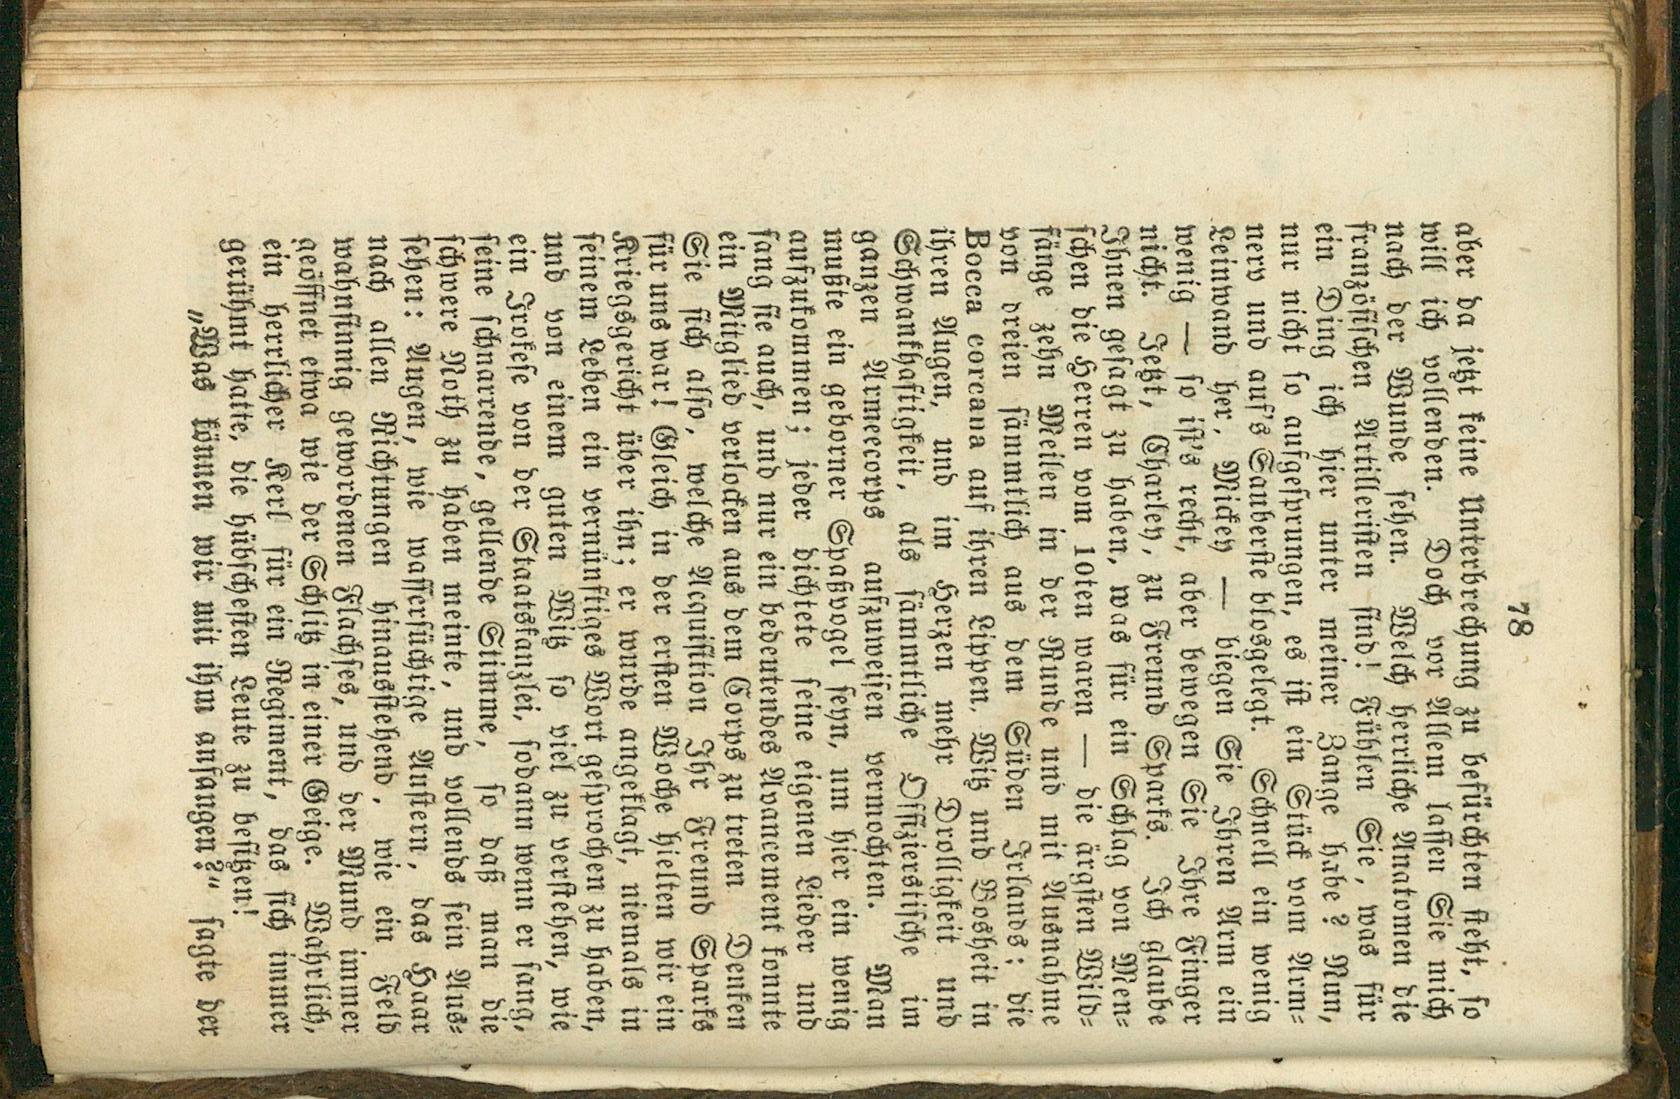 78
aber da jetzt keine Unterbrechung zu befürchten steht, so
will ich vollenden. Doch vor Allem lassen Sie mich
nach der Wunde sehen. Welch herrliche Anatomen die
französischen Artilleristen sind! Fühlen Sie, was für
ein Ding ich hier unter meiner Zange habe? Nun,
nur nicht so aufgesprungen, es ist ein Stück vom Arm-
nerv und auf's Sauberste blosgelegt. Schnell ein wenig
Leinwand her, Mickey — biegen Sie Ihren Arm ein
wenig — so ist's recht, aber bewegen Sie Ihre Finger
nicht. Jetzt, Charley, zu Freund Sparks. Ich glaube
Ihnen gesagt zu haben, was für ein Schlag von Men-
schen die Herren vom 10ten waren — die ärgsten Wild-
fänge zehn Meilen in der Runde und mit Ausnahme
von dreien sämmtlich aus dem Süden Irlands: die
Bocca corcana auf ihren Lippen. Witz und Bosheit in
ihren Augen, und im Herzen mehr Drolligkeit und
Schwankhaftigkeit, als sämmtliche Offizierstische im
ganzen Armeecorps aufzuweisen vermochten. Man
mußte ein geborner Spaßvogel seyn, um hier ein wenig
aufzukommen; jeder dichtete seine eigenen Lieder und
sang sie auch, und nur ein bedeutendes Avancement konnte
ein Mitglied verlocken aus dem Corps zu treten Denken
Sie sich also, welche Aequisition Ihr Freund Sparks
für uns war! Gleich in der ersten Woche hielten wir ein
Kriegsgericht über ihn; er wurde angeklagt, niemals in
seinem Leben ein vernünftiges Wort gesprochen zu haben,
und von einem guten Witz so viel zu verstehen, wie
ein Irokese von der Staatskanzlei, sodann wenn er sang,
seine schnarrende, gellende Stimme, so daß man die
schwere Noth zu haben meinte, und vollends sein Aus-
sehen: Augen, wie wassersüchtige Austern, das Haar
nach allen Richtungen hinausstehend, wie ein Feld
wahnsinnig gewordenen Flachses, und der Mund immer
geöffnet etwa wie der Schlitz in einer Geige. Wahrlich,
ein herrlicher Kerl für ein Regiment, das sich immer
gerühmt hatte, die hübschesten Leute zu besitzen!
„Was können wir mit ihm anfangen?" sagte der